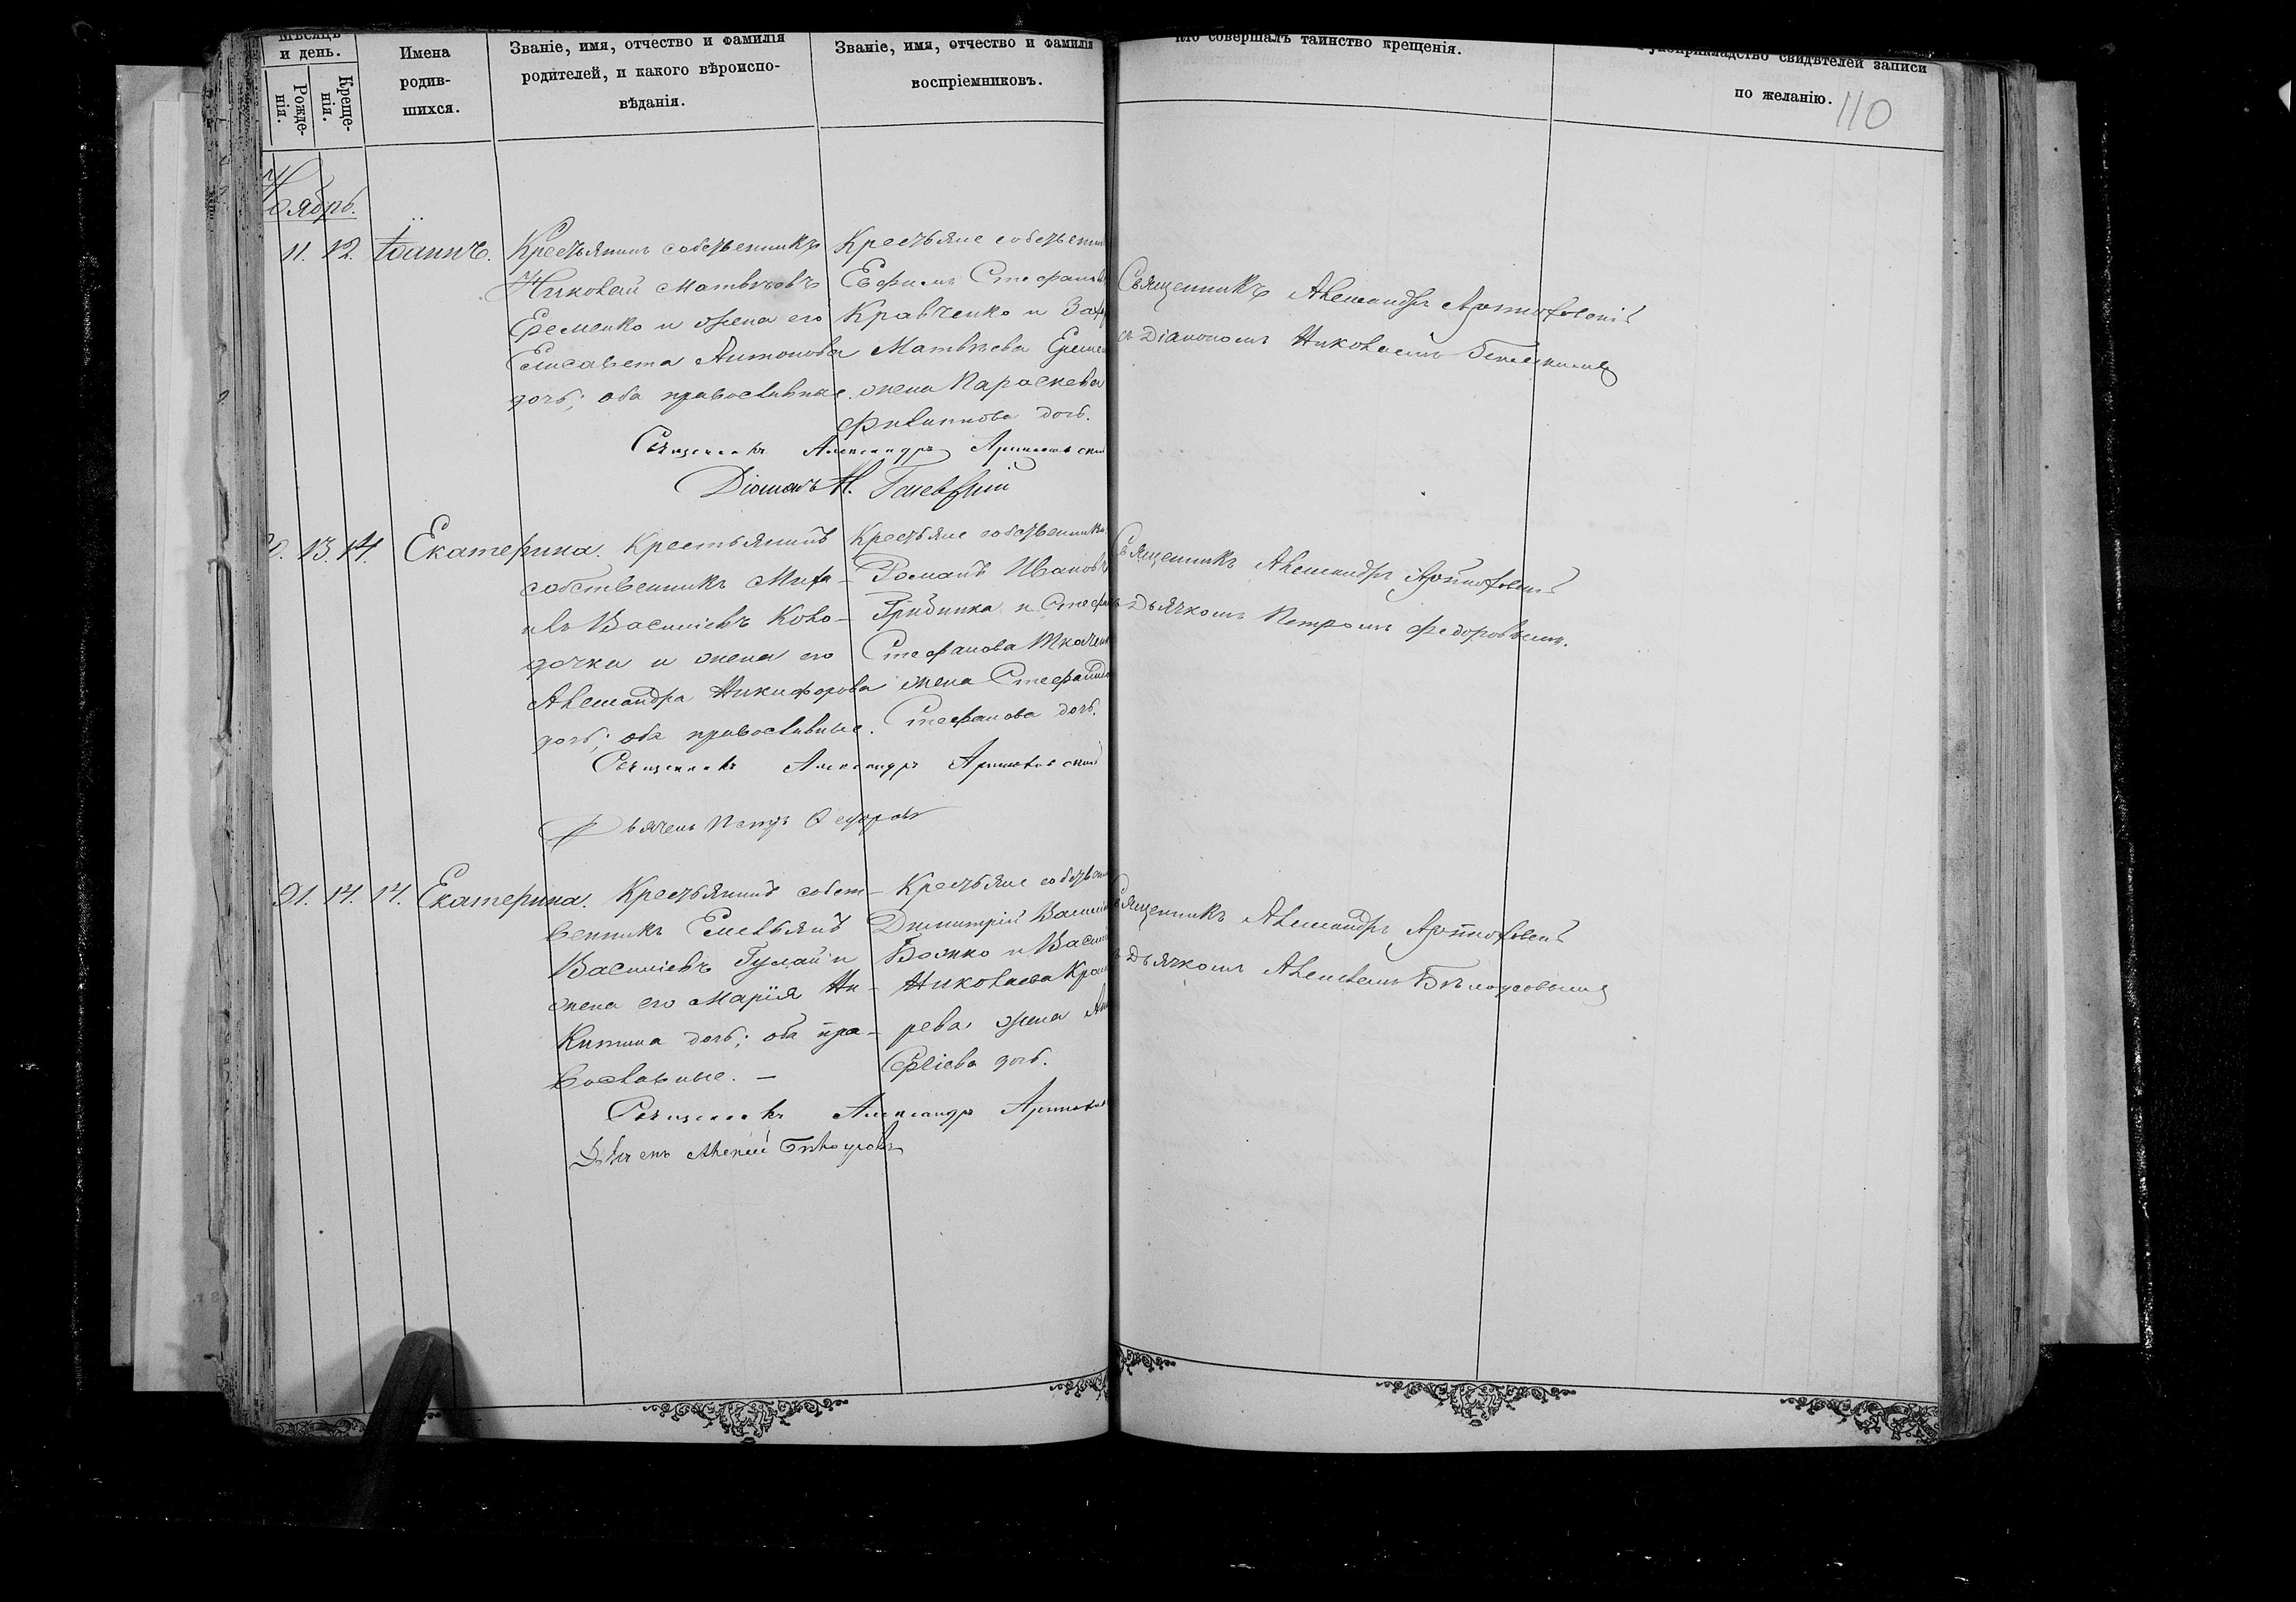 Мѣсяцъ
и день.
Рожде-
нія.
Креще-
нія.
Имена
родив-
шихся.
Званіе, имя, отчество и фамилія
родителей, и какого вѣроиспо-
вѣданія.
Званіе, имя, отчество и фамилія
воспріемниковъ.
совершалъ таинство крещенія.
свидѣтелей записи
по желанію.
110
Ноябрь.
11. 12. Іоаннъ.
Крестьянинъ собственникъ
Николай Матвѣевъ
Еременко и жена его
Елисавета Антонова
дочь; оба православные.
Крестьяне собственни
Ефимъ Стефановъ
Кравченко и
Матвѣева Ереме
жена Параскева
Филиппова дочь.
Священникъ Александръ
съ Діакономъ Николаемъ
Священникъ Александръ
Діаконъ Н.
13. 14. Екатерина.
Крестьянинъ
собственникъ Миха-
илъ Василіевъ Коло-
дочка и жена его
Александра Никифорова
дочь; оба православные.
Крестьяне собственники
Романъ Ивановъ
Гридинка и Стеф
Стефанова Ткачен
жена Стефанида
Стефанова дочь.
Священникъ Александръ
Дьячкомъ Петромъ Федоровымъ.
Священникъ Александръ
Дьячекъ Петръ Федоровъ
21. 14. 14. Екатерина.
Крестьянинъ собст-
венникъ Емельянъ
Василіевъ Гулай и
жена его Марія Ни-
китина дочь; оба пра-
вославные. —
Крестьяне собствен
Димитрій Васил
Божко и Васил
Николаева
рева жена
дочь.
Священникъ Александръ
Дьячкомъ Алексѣемъ Бѣлоусовымъ
Священникъ Александръ
Дьячекъ Алексѣй Бѣлоусовъ